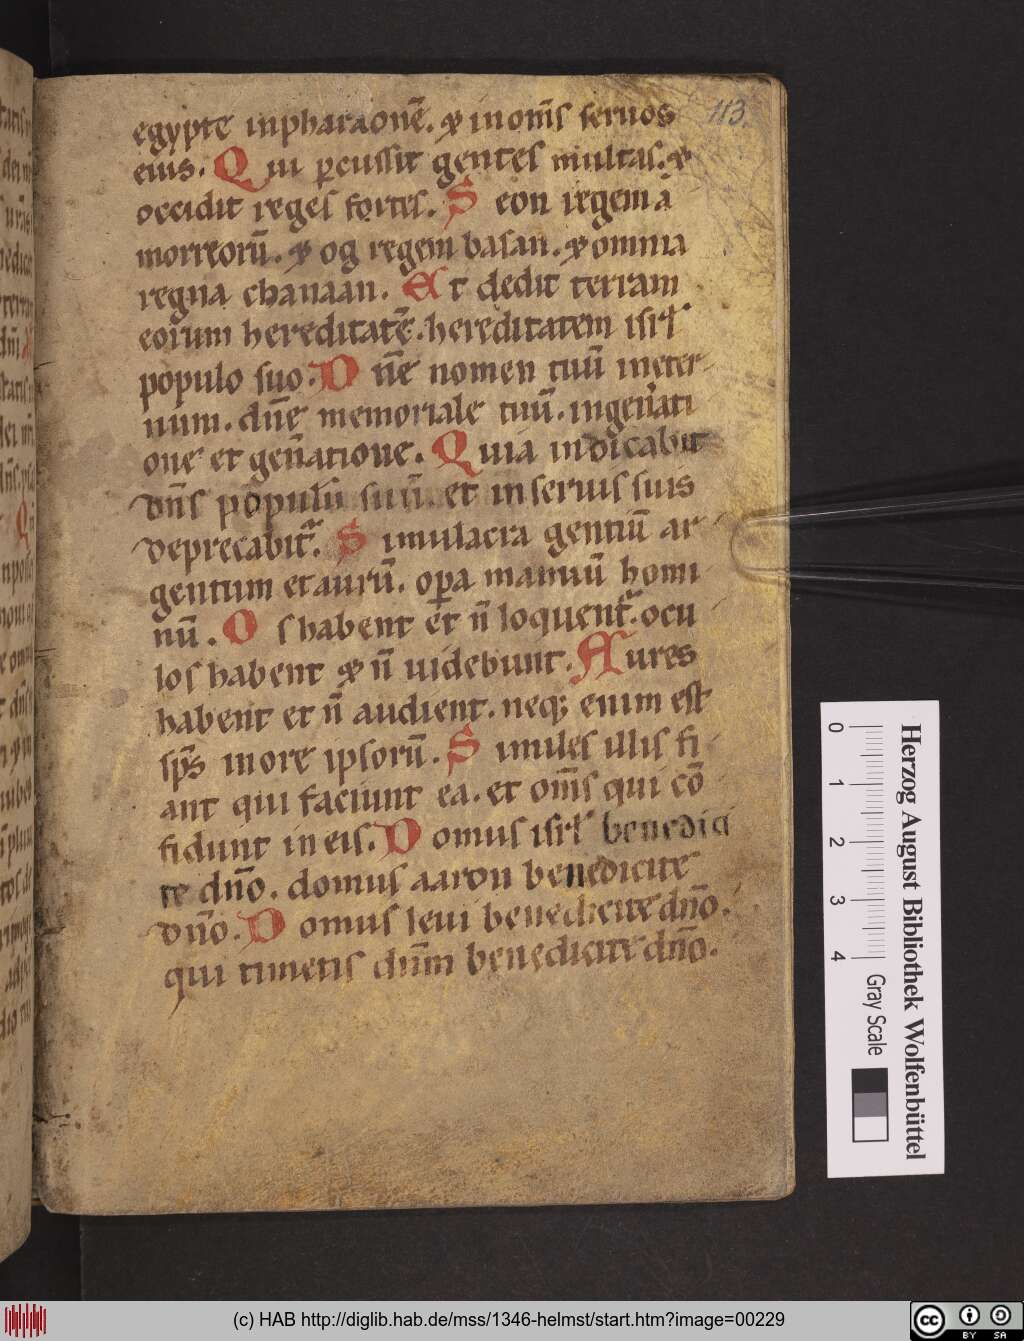 113.
egypte inpharaonē. ⁊ inom̄s seruos
eius. Qui ꝑcussit gentes multas. ⁊
occidit reges fortes. Seon regem a
morreorū. ⁊ og regem basan. ⁊ omnia
regna chanaan. Et dedit terram
eorum hereditatē. hereditatem isrl̄
populo suo. Dn̄e nomen tuū ineter
num. dn̄e memoriale tuū. ingen̄ati
one et gen̄atione. Quia indicabit
dn̄s populū suū. et inseruis suis
deprecabit᷑. Simulacra gentiū ar
gentum et aurū. oꝑa manuū homi
nū. Os habent et n̄ loquent᷑. ocu
los habent ⁊ n̄ uidebunt. Aures
habent et n̄ audient. neqꝫ enim est
sp̄s inore ipsorū. Similes illis fi
ant qui faciunt ea. et om̄s qui cō
fidunt in eis. Domus isrl̄ benedici
te dn̄o. domus aaron benedicite
dn̄o. Domus leui benedicite dn̄o.
qui timetis dn̄m benedicite dn̄o.
Herzog August Bibliothek Wolfenbüttel
0 1 2 3 4 Gray Scale
(c) HAB http://diglib.hab.de/mss/1346-helmst/start.htm?image=00229
cc BY SA